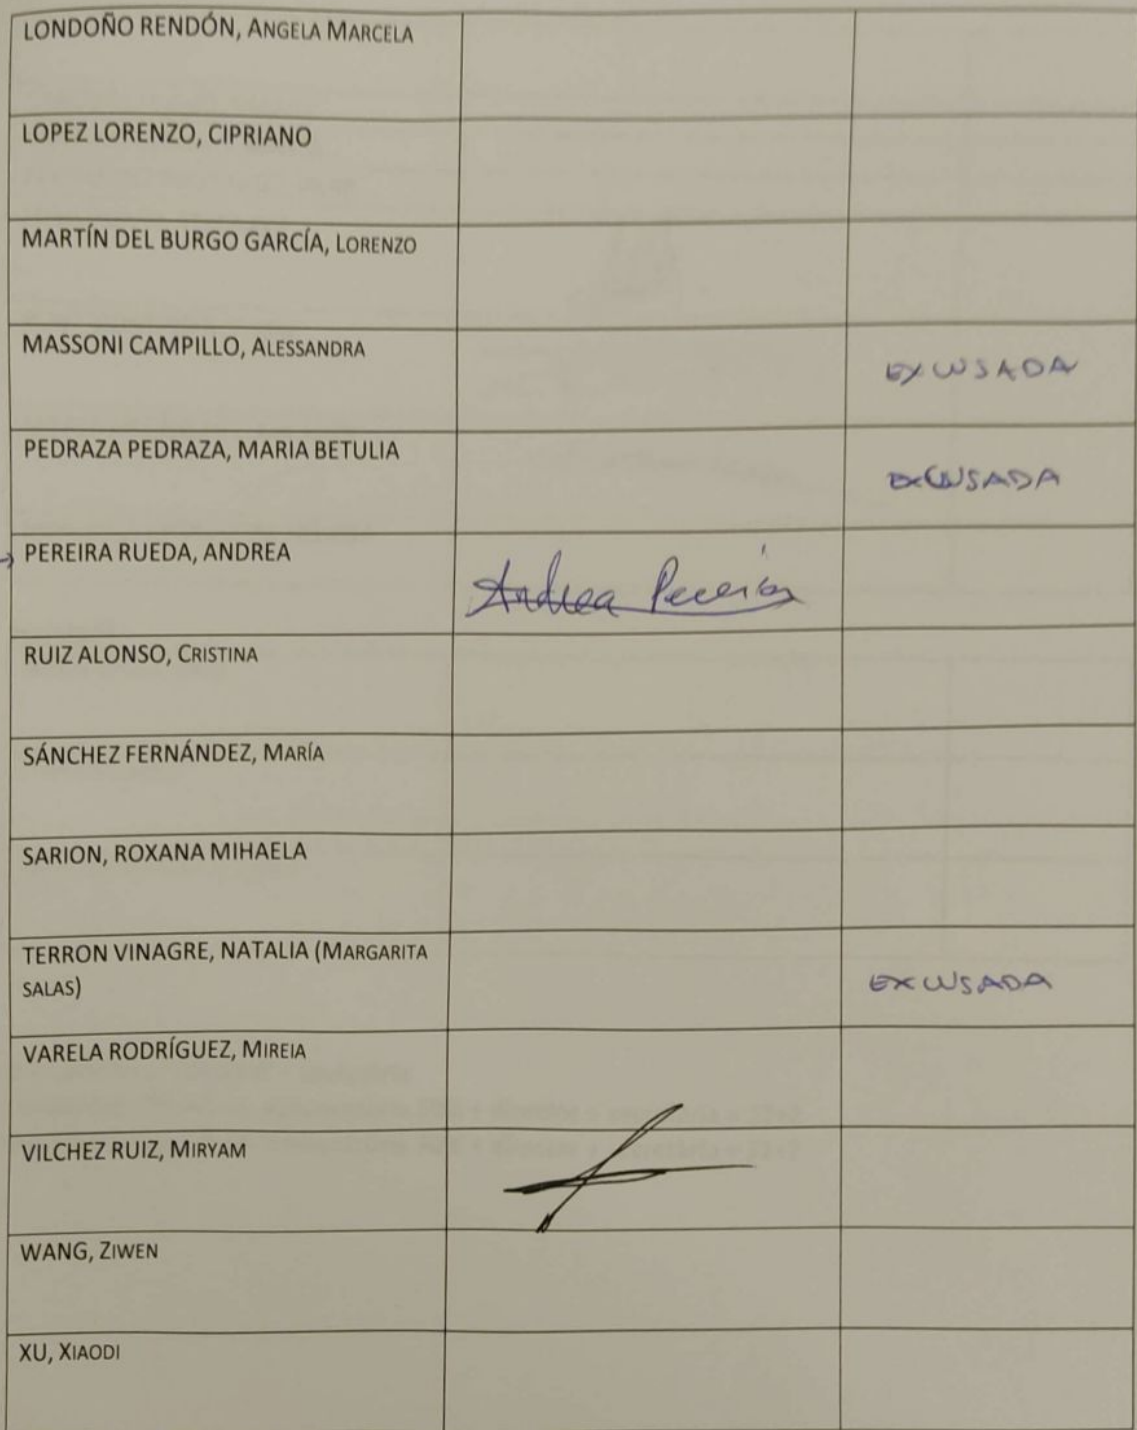 LONDOÑO RENDÓN, ANGELA MARCELA
LOPEZ LORENZO, CIPRIANO
MARTÍN DEL BURGO GARCÍA, LORENZO
MASSONI CAMPILLO, ALESSANDRA
EXCUSADA
PEDRAZA PEDRAZA, MARIA BETULIA
EXCUSADA
PEREIRA RUEDA, ANDREA
Andrea Pereira
RUIZ ALONSO, CRISTINA
SÁNCHEZ FERNÁNDEZ, MARÍA
SARION, ROXANA MIHAELA
TERRON VINAGRE, NATALIA (MARGARITA
SALAS)
EXCUSADA
VARELA RODRÍGUEZ, MIREIA
VILCHEZ RUIZ, MIRYAM
WANG, ZIWEN
XU, XIAODI